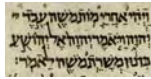 ויהי אחרי מות משה עבד
יהוה ויאמר יהוה אל יהושע
בן נון משרת משה לאמר׃